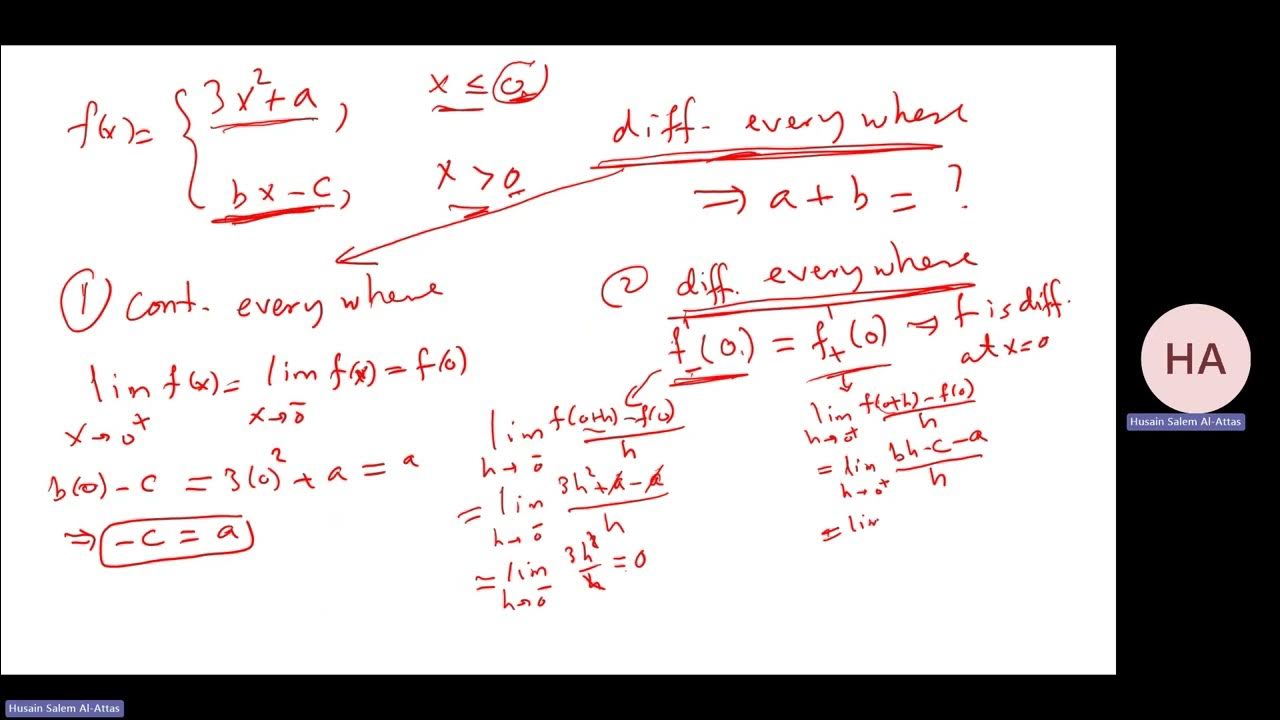 f(x) = { 3x² + a, x ≤ 0
bx - c, x > 0
diff. every where
⇒ a + b = ?
① cont. every where
lim f(x) = lim f(x) = f(0)
x→0⁺ x→0⁻
b(0) - c = 3(0)² + a = a
⇒ -c = a
② diff. every where
f'₋(0) = f'₊(0) ⇒ f is diff.
at x=0
lim f(0+h) - f(0) / h
h→0⁻
= lim 3h² + a - a / h
h→0⁻
= lim 3h² / h = 0
h→0⁻
lim f(0+h) - f(0) / h
h→0⁺
= lim bh - c - a / h
h→0⁺
= lim
HA
Husain Salem Al-Attas
Husain Salem Al-Attas